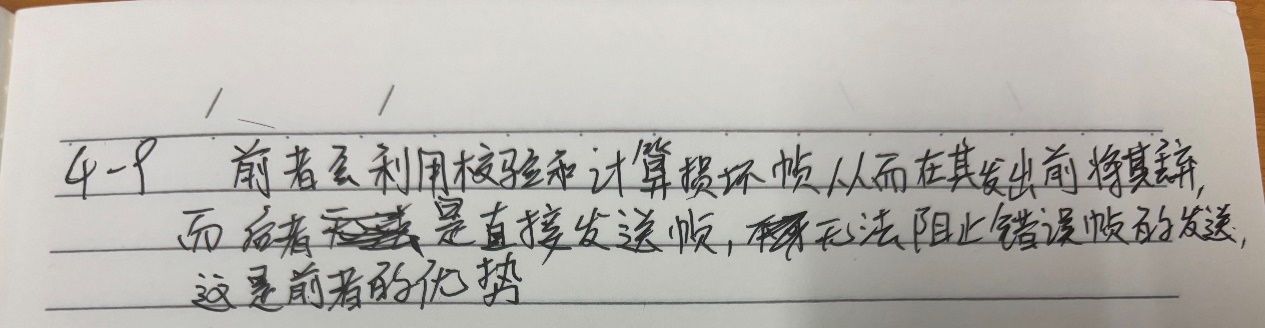 4-9 前者会利用校验和计算损坏帧从而在其发出前将其弃,
而后者是直接发送帧,无法阻止错误帧的发送,
这是前者的优势